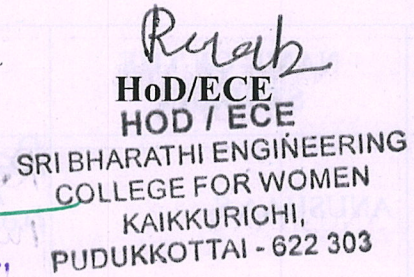 HoD/ECE
HOD / ECE
SRI BHARATHI ENGINEERING
COLLEGE FOR WOMEN
KAIKKURICHI,
PUDUKKOTTAI - 622 303